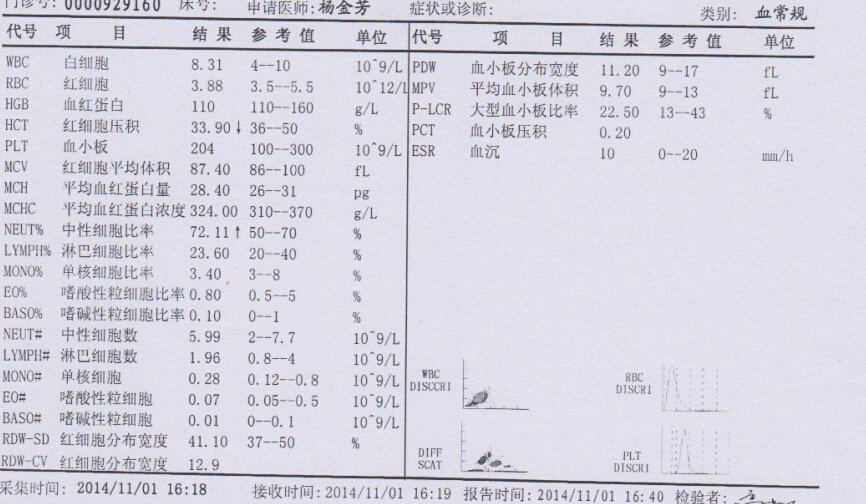 门诊号: 0000929160 床号: 申请医师: 杨金芳 症状或诊断: 类别: 血常规
代号 项 目 结 果 参 考 值 单位 代号 项 目 结 果 参 考 值 单位
WBC 白细胞 8.31 4--10 10^9/L PDW 血小板分布宽度 11.20 9--17 fL
RBC 红细胞 3.88 3.5--5.5 10^12/L MPV 平均血小板体积 9.70 9--13 fL
HGB 血红蛋白 110 110--160 g/L P-LCR 大型血小板比率 22.50 13--43 %
HCT 红细胞压积 33.90↓ 36--50 % PCT 血小板压积 0.20
PLT 血小板 204 100--300 10^9/L ESR 血沉 10 0--20 mm/h
MCV 红细胞平均体积 87.40 86--100 fL
MCH 平均血红蛋白量 28.40 26--31 pg
MCHC 平均血红蛋白浓度 324.00 310--370 g/L
NEUT% 中性细胞比率 72.11↑ 50--70 %
LYMPH% 淋巴细胞比率 23.60 20--40 %
MONO% 单核细胞比率 3.40 3--8 %
EO% 嗜酸性粒细胞比率 0.80 0.5--5 %
BASO% 嗜碱性粒细胞比率 0.10 0--1 %
NEUT# 中性细胞数 5.99 2--7.7 10^9/L
LYMPH# 淋巴细胞数 1.96 0.8--4 10^9/L
MONO# 单核细胞 0.28 0.12--0.8 10^9/L
EO# 嗜酸性粒细胞 0.07 0.05--0.5 10^9/L
BASO# 嗜碱性粒细胞 0.01 0--0.1 10^9/L
RDW-SD 红细胞分布宽度 41.10 37--50 %
RDW-CV 红细胞分布宽度 12.9
WBC RBC
DISCCRI DISCRI
DIFF PLT
SCAT DISCRI
采集时间: 2014/11/01 16:18 接收时间: 2014/11/01 16:19 报告时间: 2014/11/01 16:40 检验者: